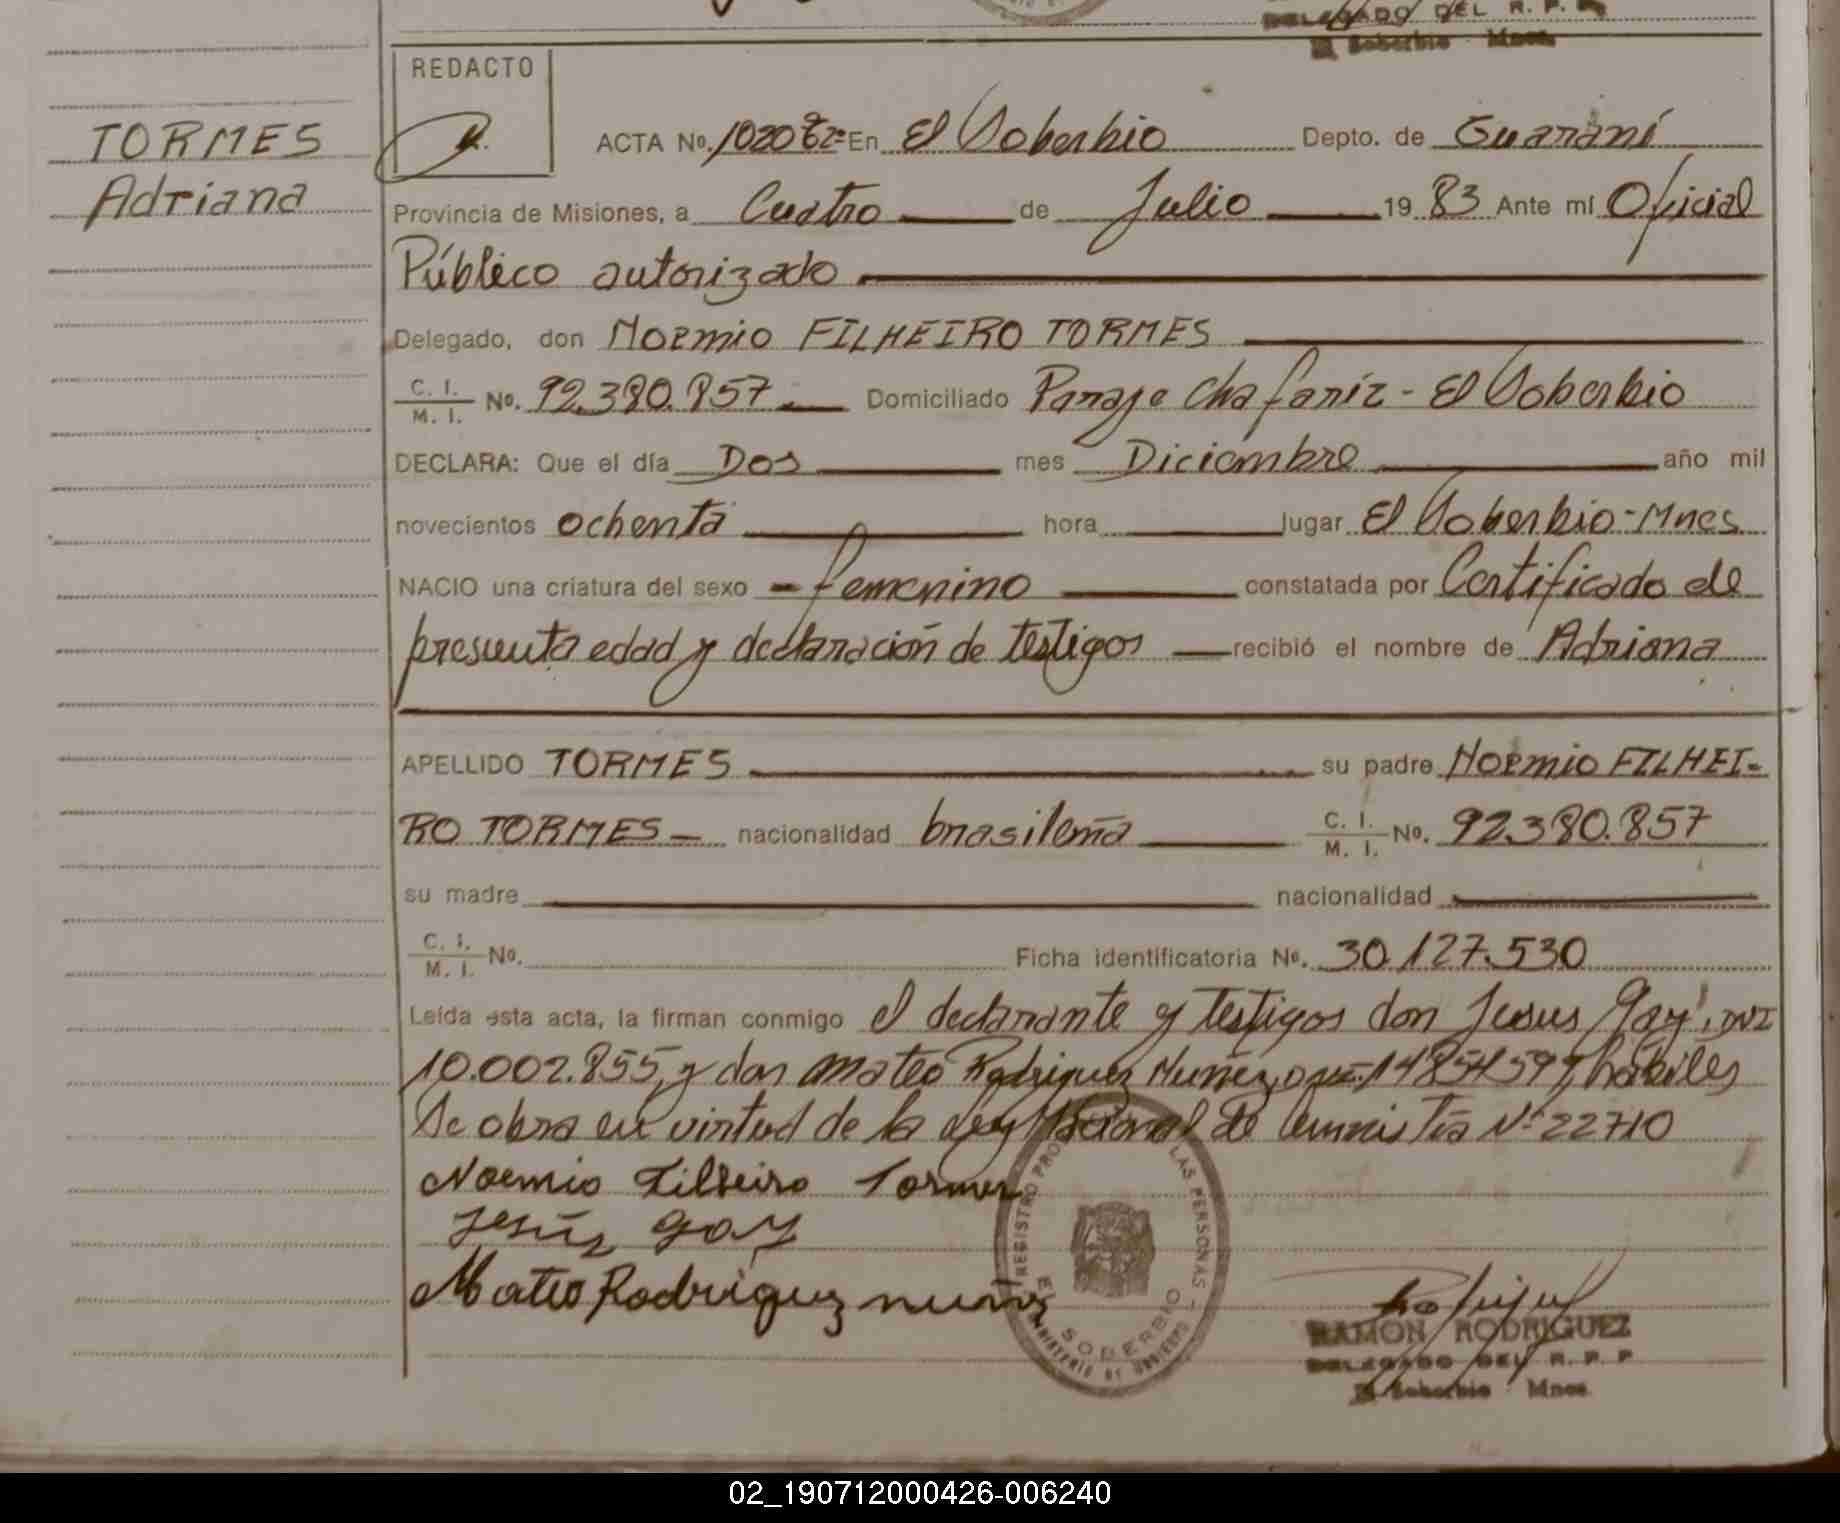 DELEGADO DEL R. P. P.
El Soberbio Mnes.
REDACTO
TORMES
Adriana
ACTA No. 1020 En El Soberbio Depto. de Guaraní
Provincia de Misiones, a Cuatro de Julio 19 83 Ante mí Oficial
Público autorizado
Delegado, don Noemio FILHEIRO TORMES
C. I.
M. I. No. 92.380.857 Domiciliado Paraje Chafariz - El Soberbio
DECLARA: Que el día Dos mes Diciembre año mil
novecientos ochenta hora lugar El Soberbio-Mnes
NACIO una criatura del sexo - femenino constatada por Certificado de
presunta edad y declaración de testigos recibió el nombre de Adriana
APELLIDO TORMES su padre Noemio FILHEI-
RO TORMES nacionalidad brasileña C. I.
M. I. No. 92.380.857
su madre nacionalidad
C. I.
M. I. No. Ficha identificatoria No. 30.127.530
Leída esta acta, la firman conmigo el declarante y testigos don Jesus Gay, DNI
10.002.855, y don Mateo Rodriguez Nuñez, hábiles
Se obra en virtud de la Ley Nacional de Amnistía Nº 22710
Noemio Filheiro Tormes
Jesús Gay
Mateo Rodriguez nuñez
REGISTRO LAS PERSONAS
SOBERBIO
MINISTERIO DE GOBIERNO
RAMON RODRIGUEZ
DELEGADO DEL R. P. P
El Soberbio Mnes.
02_190712000426-006240